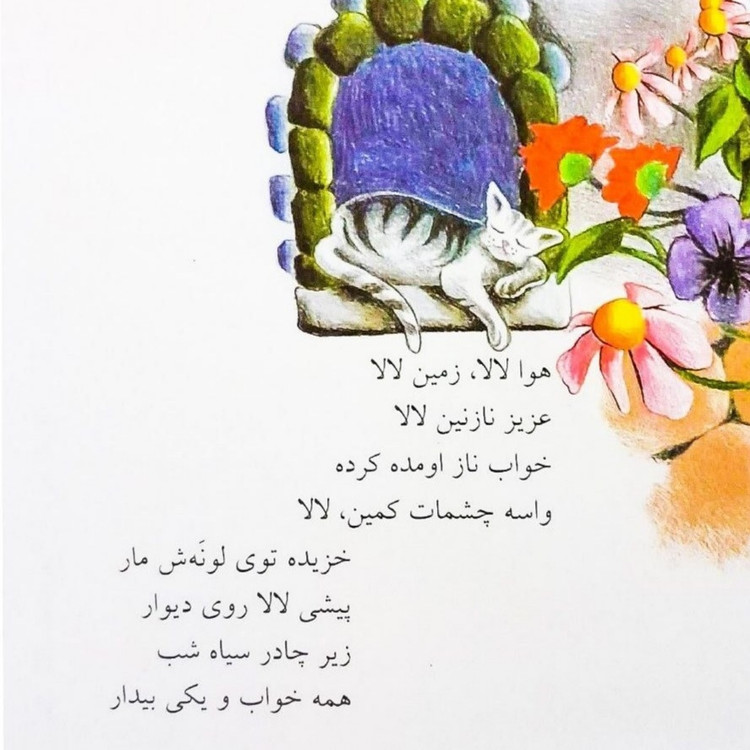 هوا لالا، زمین لالا
عزیز نازنین لالا
خواب ناز اومده کرده
واسه چشمات کمین، لالا
خزیده توی لونَه‌ش مار
پیشی لالا روی دیوار
زیر چادر سیاه شب
همه خواب و یکی بیدار